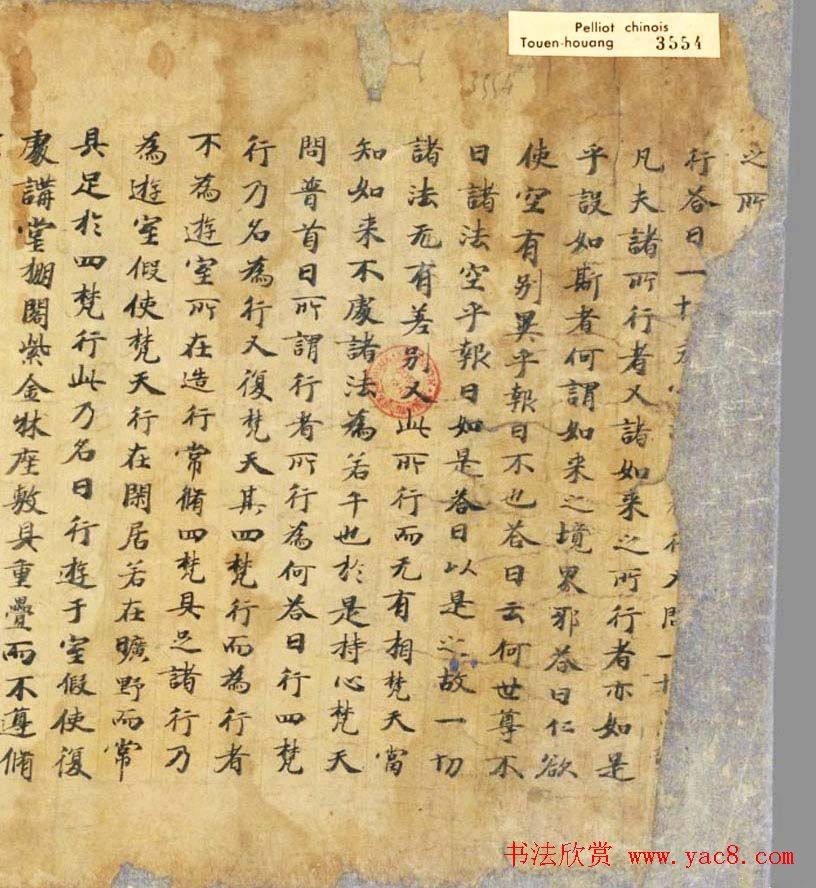 Pelliot chinois
Touen-houang 3554
3554
之所
行答曰一切
凡夫諸所行者又諸如来之所行者亦如是
乎設如斯者何謂如来之境界邪答曰仁欲
使空有別異乎報曰不也答曰云何世尊不
曰諸法空乎報曰如是答曰以是之故一切
諸法无有差別又此所行而无有相梵天當
知如来不處諸法為若干也於是持心梵天
問普首曰所謂行者所行為何答曰行四梵
行乃名為行又復梵天其四梵行而為行者
不為遊室所在造行常脩四梵具足諸行乃
為遊室假使梵天行在閑居若在曠野而常
具足於四梵行此乃名曰行遊于室假使復
處講堂棚閣紫金牀座敷具重疊而不遵脩
书法欣赏 www.yac8.com